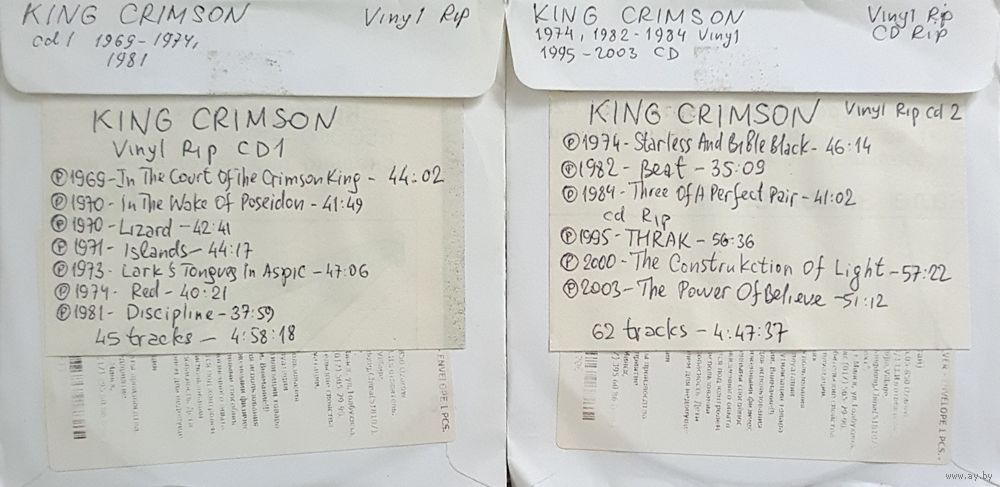 KING CRIMSON Vinyl Rip
cd1 1969-1974,
1981
KING CRIMSON
Vinyl Rip CD1
Ⓟ1969-In The Court Of The Crimson King - 44:02
Ⓟ1970-In The Wake Of Poseidon - 41:49
Ⓟ1970-Lizard - 42:41
Ⓟ1971-Islands - 44:17
Ⓟ1973-Lark's Tongues In Aspic - 47:06
Ⓟ1974-Red - 40:21
Ⓟ1981-Discipline - 37:59
45 tracks - 4:58:18
ENVELOPE 1 PCS.
KING CRIMSON Vinyl Rip
1974, 1982-1984 Vinyl CD Rip
1995-2003 CD
KING CRIMSON Vinyl Rip cd2
Ⓟ1974-Starless And Bible Black - 46:14
Ⓟ1982-Beat - 35:09
Ⓟ1984-Three Of A Perfect Pair - 41:02
cd Rip
Ⓟ1995-THRAK - 56:36
Ⓟ2000-The Construkction Of Light - 57:22
Ⓟ2003-The Power Of Believe - 51:12
62 tracks - 4:47:37
ENVELOPE 1 PCS.
www.ay.by